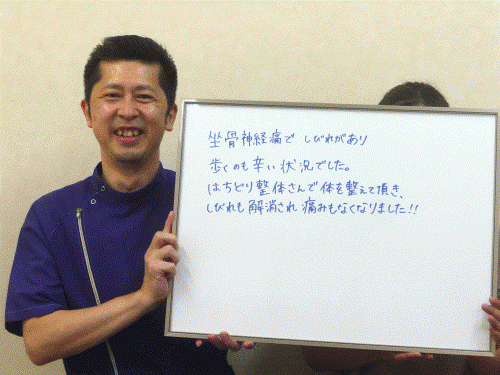 坐骨神経痛で しびれがあり
歩くのも辛い状況でした。
はちどり整体さんで体を整えて頂き、
しびれも解消され痛みもなくなりました!!